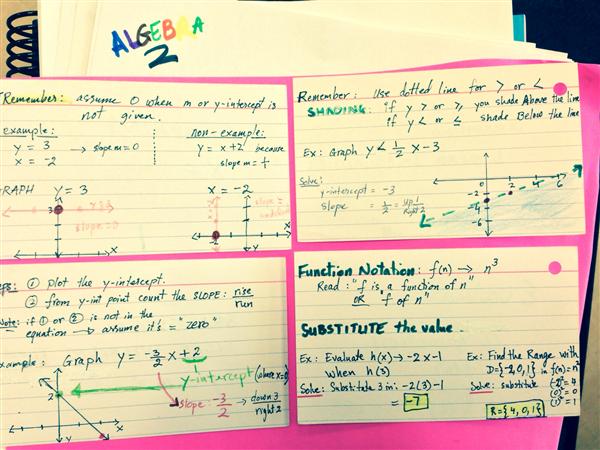 ALGEBRA
2
Remember: assume 0 when m or y-intercept is
not given.
example:
y = 3 → slope m = 0
x = -2
non-example:
y = x + 2 because
slope m = 1
GRAPH y = 3
x = -2
3
x
y
slope = 0
-2
slope =
x
y
Remember: Use dotted line for > or <
SHADING: if y > or ≥, you shade Above the line
if y < or ≤ shade Below the line
Ex: Graph y < 1/2 x - 3
Solve:
y-intercept = -3
slope = 1/2 = up 1 / Right 2
0 2 4 6
-2
-4
-6
① plot the y-intercept.
② from y-int point count the SLOPE: rise/run
Note: if ① or ② is not in the
equation → assume it's = "zero"
example: Graph y = -3/2 x + 2
y-intercept (where x=0)
slope -3/2 → down 3
right 2
2
x
y
Function Notation: f(n) → n³
Read: "f is a function of n"
OR "f of n"
SUBSTITUTE the value...
Ex: Evaluate h(x) → -2x-1
when h(3)
Solve: Substitute 3 in: -2(3)-1
= -7
Ex: Find the Range with
D={-2,0,1} in f(n)=n²
Solve: substitute (-2)² = 4
(0)² = 0
(1)² = 1
R={4,0,1}